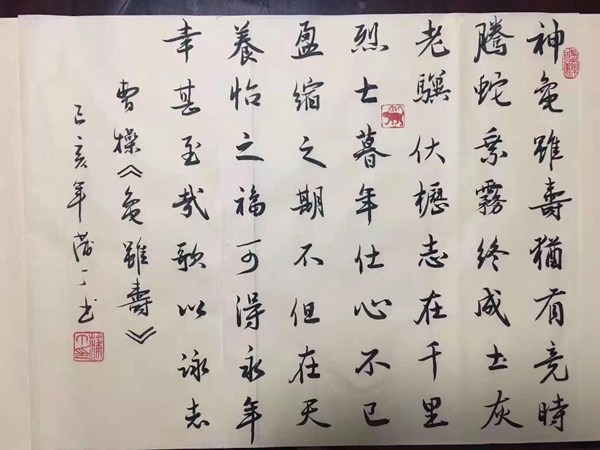 神龜雖壽猶有竟時
騰蛇乘霧終成土灰
老驥伏櫪志在千里
烈士暮年仕心不已
盈縮之期不但在天
養怡之福可得永年
幸甚至哉歌以詠志
曹操《龜雖壽》
己亥年蒲丁书